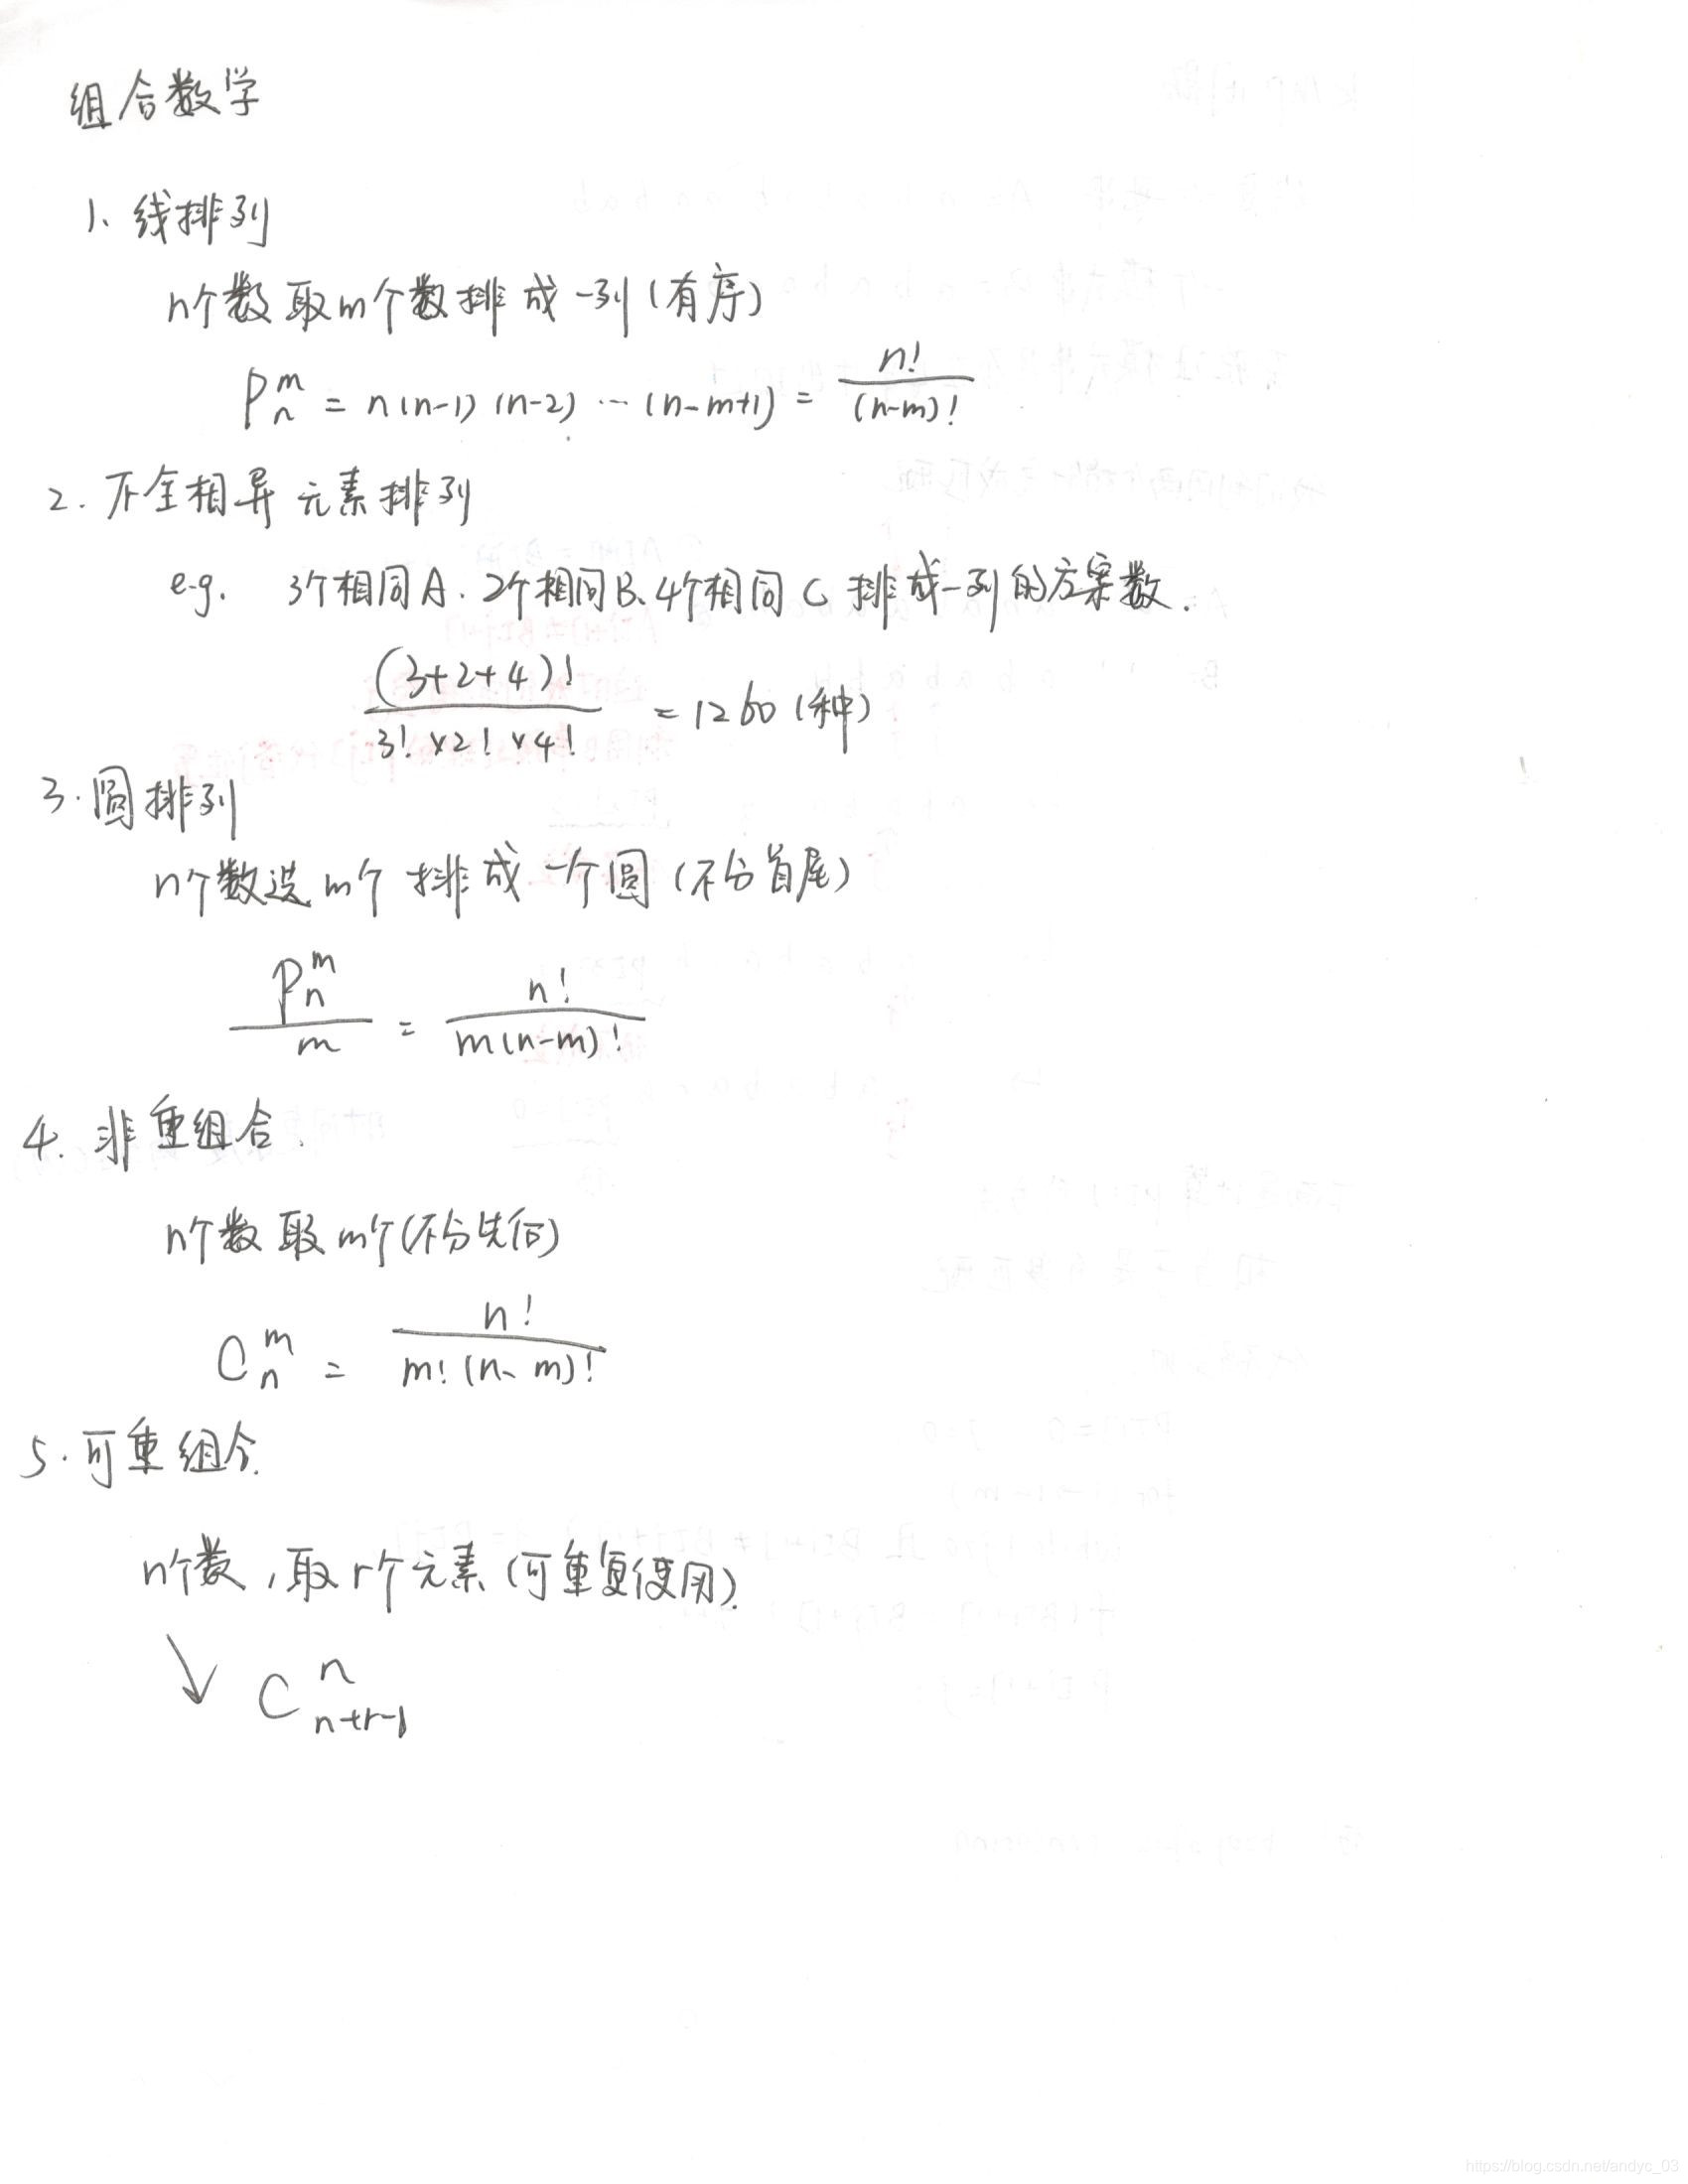 组合数学
1、线排列
n个数取m个数排成一列(有序)
P_n^m = n(n-1)(n-2)…(n-m+1) = n!/(n-m)!
2.不全相异元素排列
e.g. 3个相同A、2个相同B、4个相同C排成一列的方案数.
(3+2+4)!/(3!×2!×4!) = 1260(种)
3.圆排列
n个数选m个排成一个圆(不分首尾)
P_n^m/m = n!/(m(n-m)!)
4.非重组合.
n个数取m个(不分先后)
C_n^m = n!/(m!(n-m)!)
5.可重组合.
n个数,取r个元素(可重复使用).
↓ C_{n+r-1}^n
https://blog.csdn.net/andyc_03